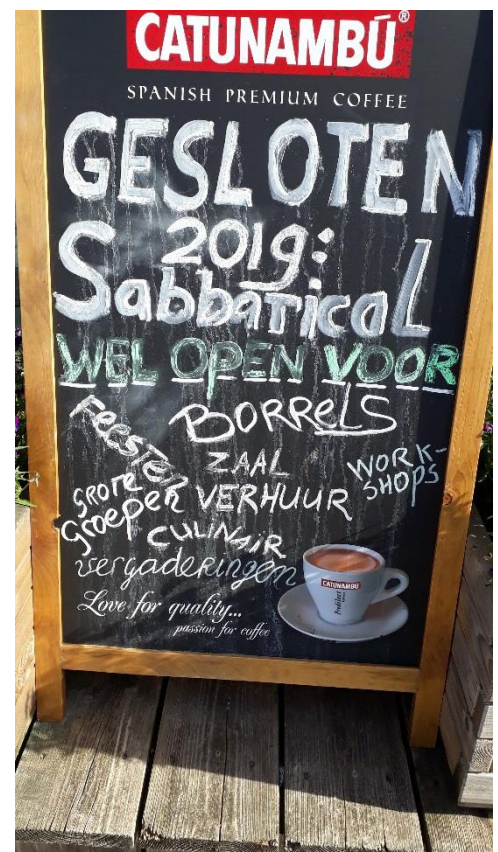 CATUNAMBÚ®
SPANISH PREMIUM COFFEE
GESLOTEN
2019:
Sabbatical
WEL OPEN VOOR
Feesten
BORRELS
ZAAL
VERHUUR
WORK-
SHOPS
GROTE
Groepen
CULINAIR
vergaderingen
Love for quality...
passion for coffee
CATUNAMBÚ